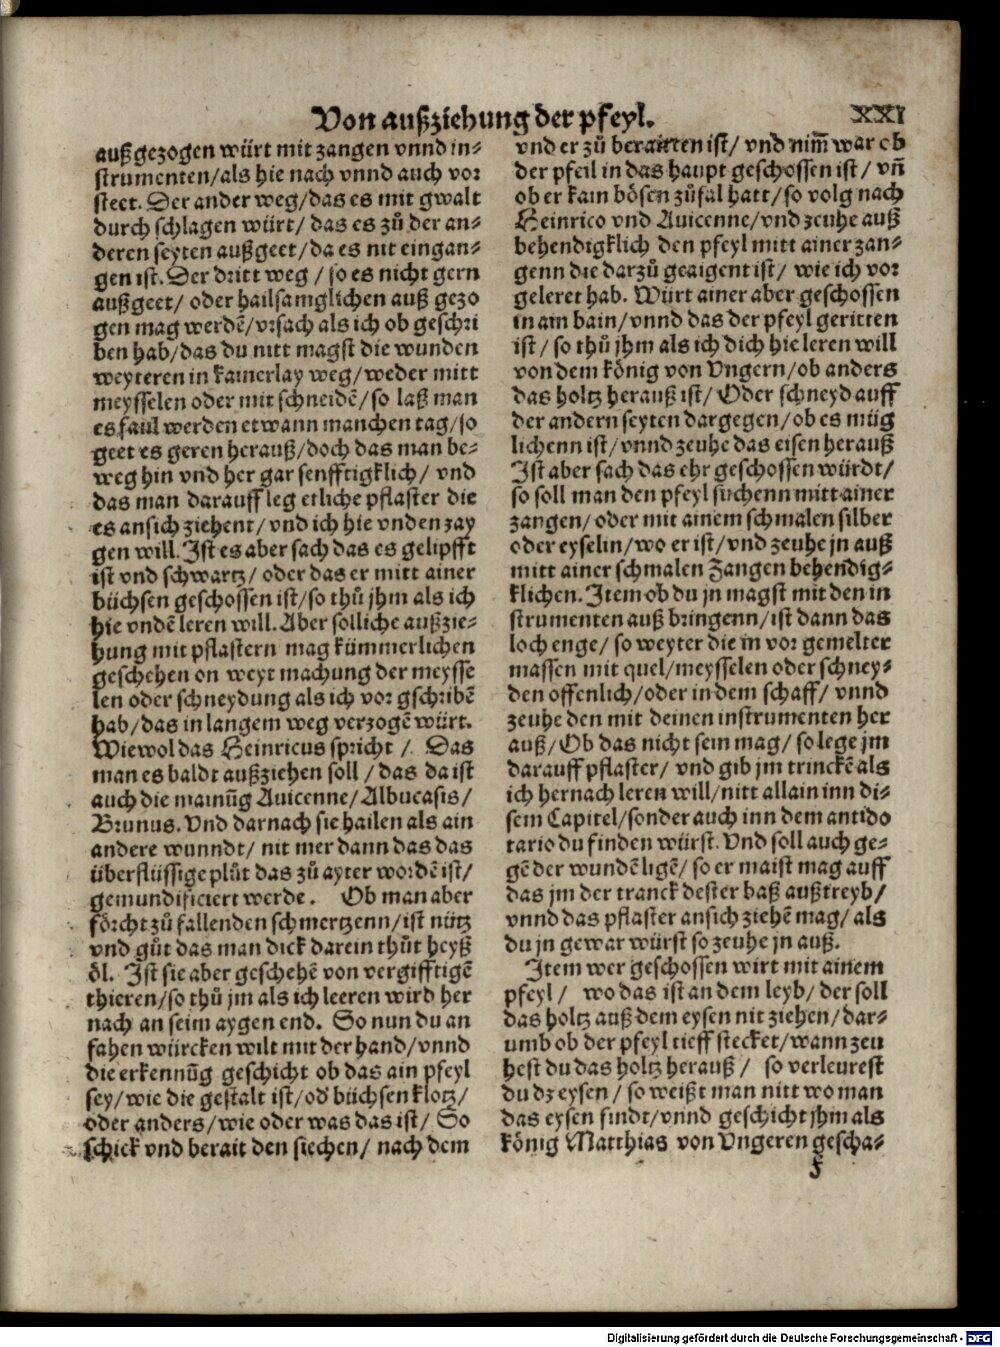 Von außziehung der pfeyl.
XXI
auß gezogen würt mit zangen vnnd in⸗
strumenten/als hie nach vnnd auch vor
steet. Der ander weg/das es mit gwalt
durch schlagen würt/ das es zů der an⸗
deren seyten außgeet/da es nit eingan⸗
gen ist. Der dritt weg / so es nicht gern
außgeet/ oder hailsamglichen auß gezo
gen mag werdē/vrsach als ich ob geschri
ben hab/das du nitt magst die wunden
weyteren in kainerlay weg/weder mitt
meysselen oder mit schneidē/so laß man
es faul werden etwann manchen tag/so
geet es geren herauß/doch das man be⸗
weg hin vnd her gar senfftigklich/ vnd
das man darauff leg etliche pflaster die
es an sich ziehent/vnd ich hie vnden zay
gen will. Ist es aber sach das es gelipfft
ist vnd schwartz/ oder das er mitt ainer
büchsen geschossen ist/so thů jhm als ich
hie vndē leren will. Aber solliche außzie⸗
hung mit pflastern mag kümmerlichen
geschehen on weyt machung der meysse
len oder schneydung als ich vor gschribē
hab/das in langem weg verzogē würt.
Wiewol das Heinricus spricht / Das
man es baldt außziehen soll /das da ist
auch die mainūg Auicenne/Albucasis/
Brunus. Vnd darnach sie hailen als ain
andere wunndt/ nit mer dann das das
überflüssige plůt das zů ayter wordē ist/
gemundificiert werde. Ob man aber
förcht zů fallenden schmertzenn/ist nütz
vnd gůt das man dick darein thůt heyß
öl. Ist sie aber geschehē von vergifftigē
thieren/so thů jm als ich leeren wird her
nach an seim aygen end. So nun du an
fahen würcken wilt mit der hand/vnnd
die erkennūg geschicht ob das ain pfeyl
sey/wie die gestalt ist/od' büchsen klotz/
oder anders/wie oder was das ist/ So
schick vnd berait den siechen/ nach dem
vnd er zů beraitten ist/ vnd nim̄ war ob
der pfeil in das haupt geschossen ist/ vn̄
ob er kain bösen zůfal hatt/so volg nach
Heinrico vnd Auicenne/vnd zeuhe auß
behendigklich den pfeyl mitt ainer zan⸗
genn die darzů geaigent ist/ wie ich vor
geleret hab. Würt ainer aber geschossen
in ain bain/vnnd das der pfeyl geritten
ist/ so thů jhm als ich dich hie leren will
von dem könig von Vngern/ob anders
das holtz herauß ist/ Oder schneyd auff
der andern seyten dargegen/ob es müg
lichenn ist/vnnd zeuhe das eisen herauß
Ist aber sach das ehr geschossen würdt/
so soll man den pfeyl suchenn mitt ainer
zangen/oder mit ainem schmalen silber
oder eyselin/wo er ist/vnd zeuhe jn auß
mitt ainer schmalen Zangen behendig⸗
klichen. Item ob du jn magst mit den in
strumenten auß bringenn/ist dann das
loch enge/ so weyter die in vor gemelter
massen mit quel/meysselen oder schney⸗
den offenlich/oder in dem schaff/ vnnd
zeuhe den mit deinen instrumenten her
auß/Ob das nicht sein mag/ so lege jm
darauff pflaster/ vnd gib jm trinckē als
ich hernach leren will/nitt allain inn di⸗
sem Capitel/sonder auch inn dem antido
tario du finden würst. Vnd soll auch ge⸗
gē der wundē ligē/ so er maist mag auff
das jm der tranck dester baß außtreyb/
vnnd das pflaster an sich ziehē mag/ als
du jn gewar würst so zeuhe jn auß.
Item wer geschossen wirt mit ainem
pfeyl / wo das ist an dem leyb/ der soll
das holtz auß dem eysen nit ziehen/dar⸗
umb ob der pfeyl tieff stecket/wann zeu
hest du das holtz herauß / so verleurest
du dz eysen / so weißt man nitt wo man
das eysen findt/vnnd geschicht jhm als
könig Matthias von Vngeren gescha⸗
f
Digitalisierung gefördert durch die Deutsche Forschungsgemeinschaft - DFG